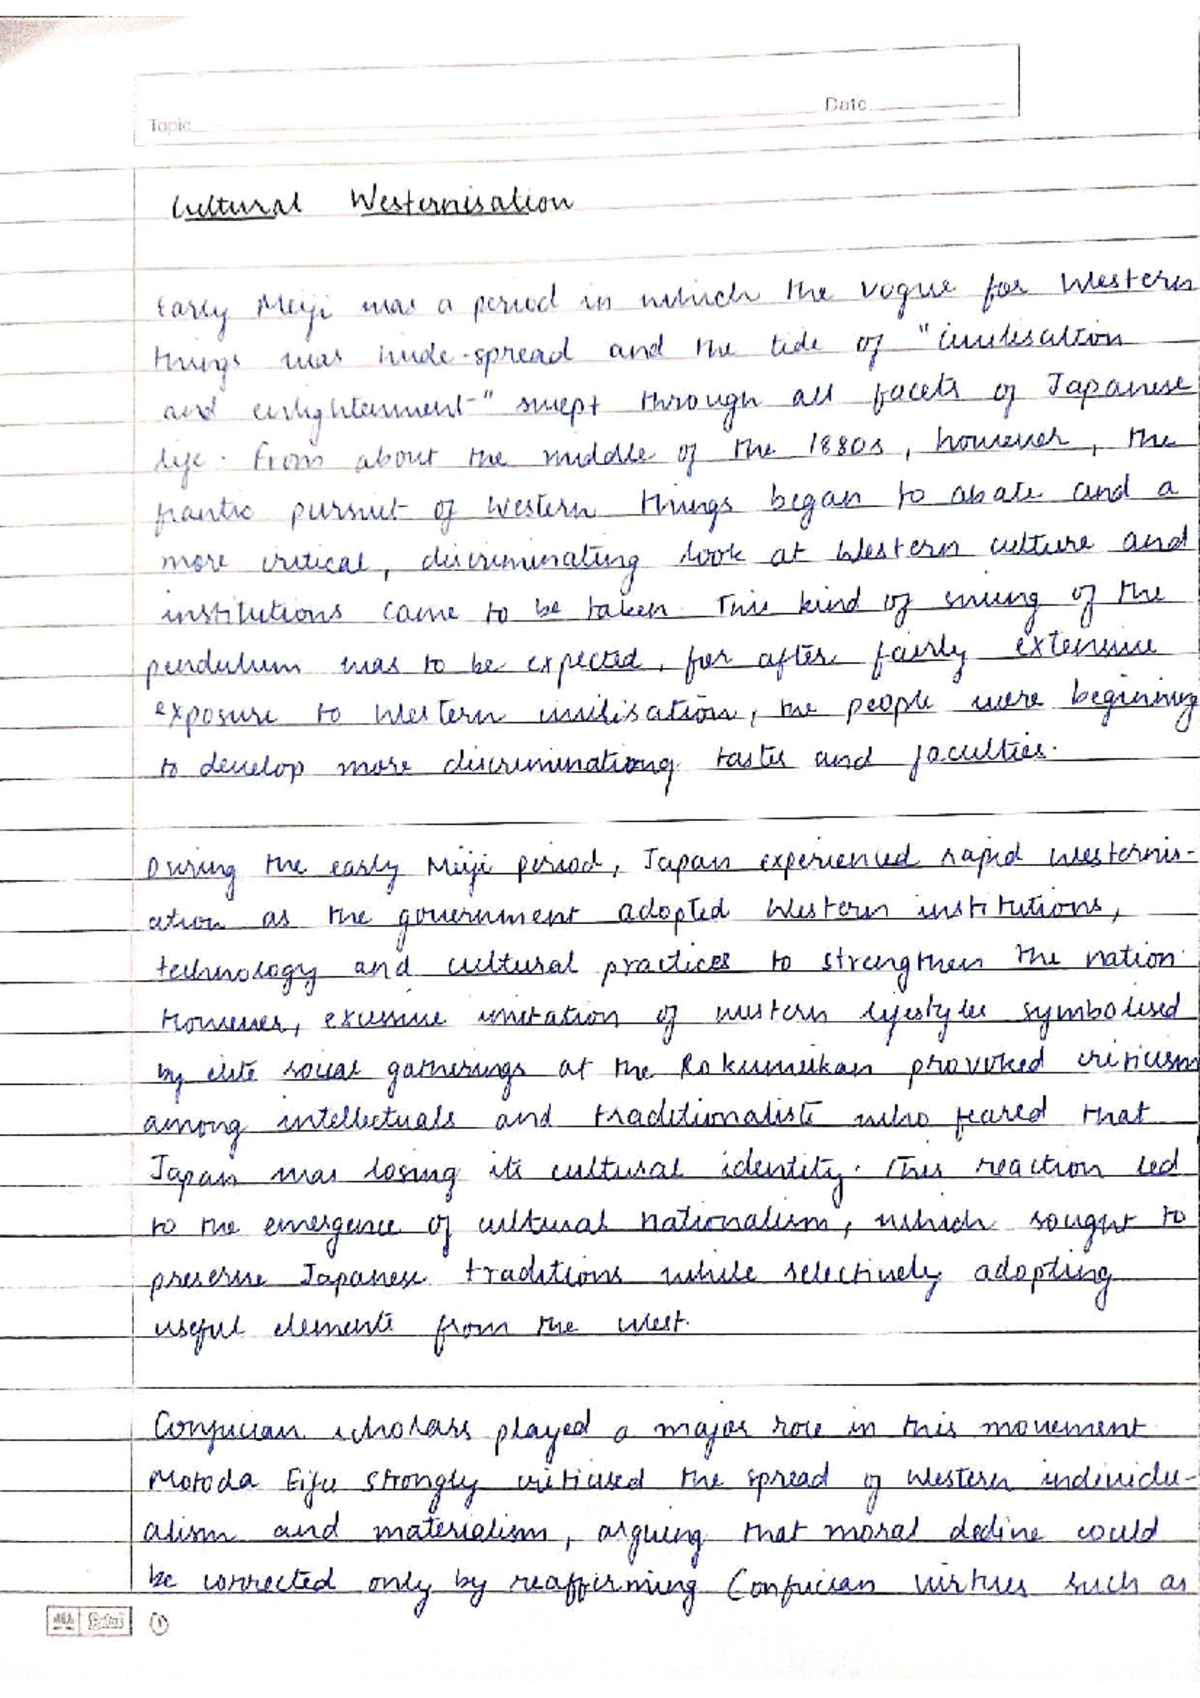 Topic
Date
Cultural Westernisation
Early Meiji was a period in which the vogue for Western
things was wide-spread and the tide of "civilisation
and enlightenment" swept through all facets of Japanese
life. From about the middle of the 1880s, however, the
frantic pursuit of Western things began to abate and a
more critical, discriminating look at Western culture and
institutions came to be taken. This kind of swing of the
pendulum was to be expected, for after fairly extensive
exposure to Western civilisation, the people were beginning
to develop more discriminationg tastes and faculties.
During the early Meiji period, Japan experienced rapid westernis-
ation as the government adopted Western institutions,
technology and cultural practices to strengthen the nation.
However, excessive imitation of western lifestyles symbolised
by elite social gatherings at the Rokumeikan provoked criticism
among intellectuals and traditionalists who feared that
Japan was losing its cultural identity. This reaction led
to the emergence of cultural nationalism, which sought to
preserve Japanese traditions while selectively adopting
useful elements from the West.
Confucian scholars played a major role in this movement
Motoda Eifu strongly criticised the spread of Western individu-
alism and materialism, arguing that moral decline could
be corrected only by reaffirming Confucian virtues such as
1